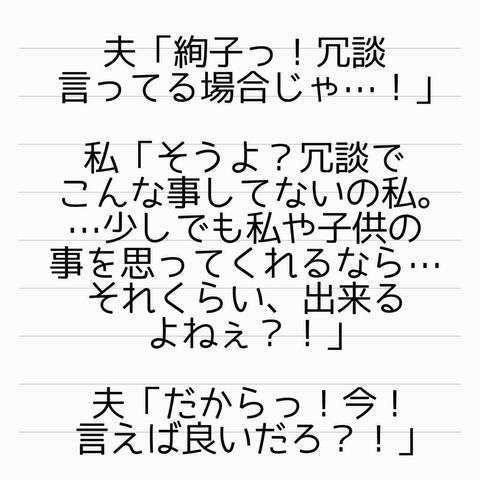 夫「絢子っ！冗談
言ってる場合じゃ…！」
私「そうよ？冗談で
こんな事してないの私。
…少しでも私や子供の
事を思ってくれるなら…
それくらい、出来る
よねぇ？！」
夫「だからっ！今！
言えば良いだろ？！」